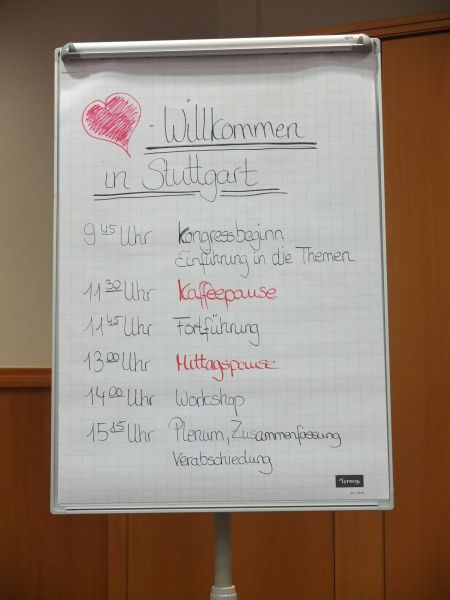 - Willkommen
in Stuttgart
9 45 Uhr Kongressbeginn
Einführung in die Themen
11 30 Uhr Kaffeepause
11 45 Uhr Fortführung
13 00 Uhr Mittagspause
14 00 Uhr Workshop
15 15 Uhr Plenum, Zusammenfassung
Verabschiedung
lyreco